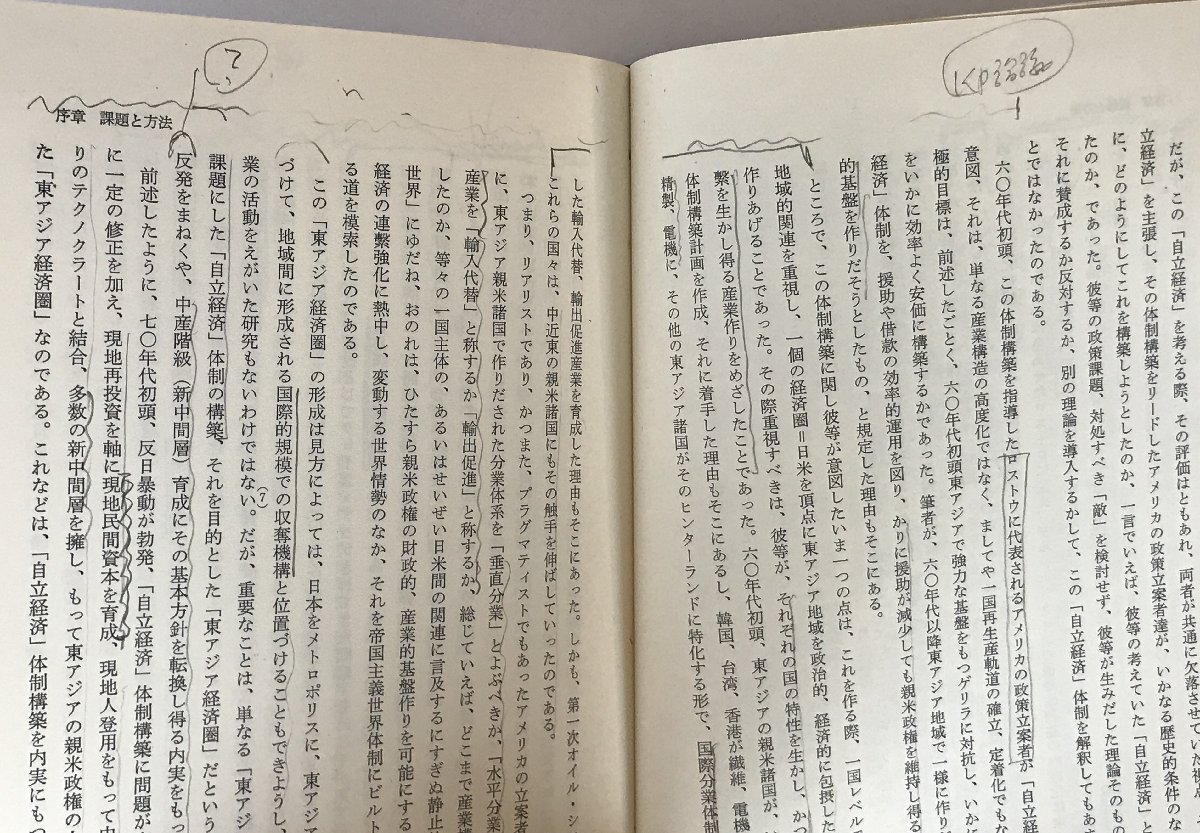 だが、この「自立経済」を考える際、その評価はともあれ、両者が共通に欠落させていた視点
立経済」を主張し、その体制構築をリードしたアメリカの政策立案者達が、いかなる歴史的条件のな
に、どのようにしてこれを構築しようとしたのか、一言でいえば、彼等の考えていた「自立経済」と
たのか、であった。彼等の政策課題、対処すべき「敵」を検討せず、彼等が生みだした理論そのも
それに賛成するか反対するか、別の理論を導入するかして、この「自立経済」体制を解釈してもあま
とではなかったのである。
六〇年代初頭、この体制構築を指導したロストウに代表されるアメリカの政策立案者が「自立経
意図、それは、単なる産業構造の高度化ではなく、ましてや一国再生産軌道の確立、定着化でもな
極的目標は、前述したごとく、六〇年代初頭東アジアで強力な基盤をもつゲリラに対抗し、いかに
をいかに効率よく安価に構築するかであった。筆者が、六〇年代以降東アジア地域で一様に作り
経済」体制を、援助や借款の効率的運用を図り、かりに援助が減少しても親米政権を維持し得る
的基盤を作りだそうとしたもの、と規定した理由もそこにある。
ところで、この体制構築に関し彼等が意図したいま一つの点は、これを作る際、一国レベル
地域的関連を重視し、一個の経済圏＝日米を頂点に東アジア地域を政治的、経済的に包摂した
作りあげることであった。その際重視すべきは、彼等が、それぞれの国の特性を生かし、かつ
繋を生かし得る産業作りをめざしたことであった。六〇年代初頭、東アジアの親米諸国が、
体制構築計画を作成、それに着手した理由もそこにあるし、韓国、台湾、香港が繊維、電機
精製、電機に、その他の東アジア諸国がそのヒンターランドに特化する形で、国際分業体制
序章 課題と方法
?
した輸入代替、輸出促進産業を育成した理由もそこにあった。しかも、第一次オイル・シ
これらの国々は、中近東の親米諸国にもその触手を伸ばしていったのである。
つまり、リアリストであり、かつまた、プラグマティストでもあったアメリカの立案者
に、東アジア親米諸国で作りだされた分業体系を「垂直分業」とよぶべきか、「水平分業
産業を「輸入代替」と称するか「輸出促進」と称するか、総じていえば、どこまで産業構
したのか、等々の一国主体の、あるいはせいぜい日米間の関連に言及するにすぎぬ静止
世界」にゆだね、おのれは、ひたすら親米政権の財政的、産業的基盤作りを可能にする
経済の連繋強化に熱中し、変動する世界情勢のなか、それを帝国主義世界体制にビルト
る道を模索したのである。
この「東アジア経済圏」の形成は見方によっては、日本をメトロポリスに、東アジア
づけて、地域間に形成される国際的規模での収奪機構と位置づけることもできようし、
業の活動をえがいた研究もないわけではない。(7)だが、重要なことは、単なる「東アジ
課題にした「自立経済」体制の構築、それを目的とした「東アジア経済圏」だという
反発をまねくや、中産階級（新中間層）育成にその基本方針を転換し得る内実をもっ
前述したように、七〇年代初頭、反日暴動が勃発、「自立経済」体制構築に問題が
に一定の修正を加え、現地再投資を軸に現地民間資本を育成、現地人登用をもって中
りのテクノクラートと結合、多数の新中間層を擁し、もって東アジアの親米政権の
た「東アジア経済圏」なのである。これなどは、「自立経済」体制構築を内実にもつ